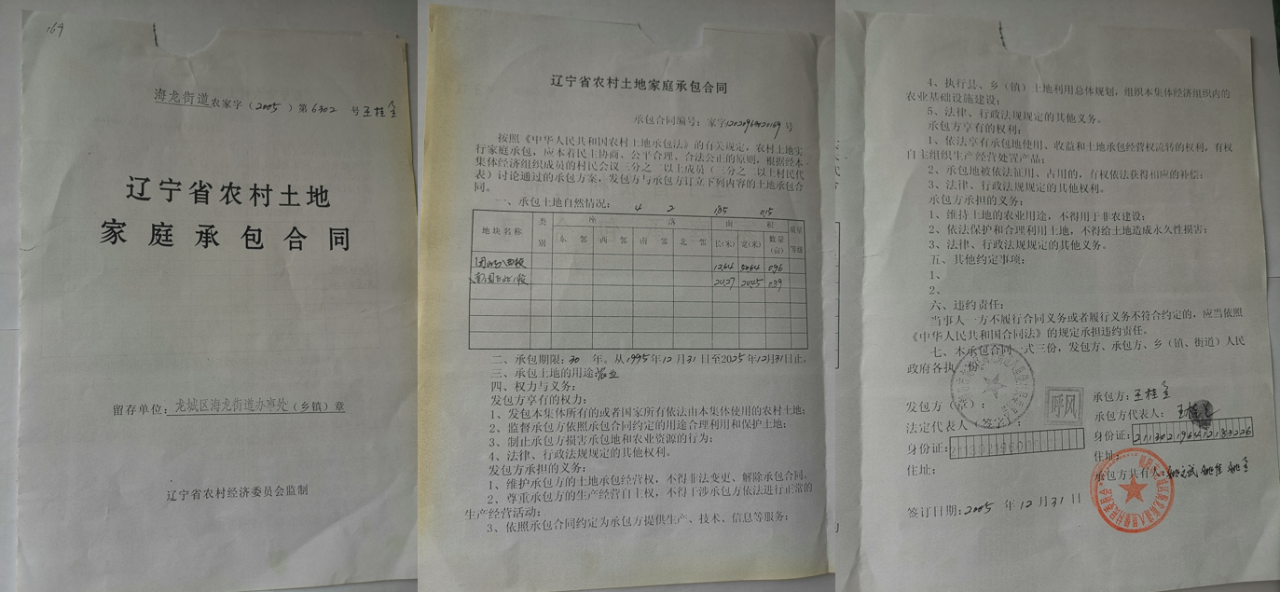 164
海龙街道农家字(2005)第6302号 王桂
辽宁省农村土地
家庭承包合同
留存单位:龙城区海龙街道办事处(乡镇)章
辽宁省农村经济委员会监制
辽宁省农村土地家庭承包合同
承包合同编号:家字 号
按照《中华人民共和国农村土地承包法》的有关规定,农村土地实
行家庭承包,应本着民主协商、公平合理、合法公正的原则,根据经本
集体经济组织成员的村民会议三分之二以上成员(三分之二以上村民代
表)讨论通过的承包方案,发包方与承包方订立下列内容的土地承包合
同。
一、承包土地自然情况: 4 2
地块名称 类别 座落 面积 质量等级
东邻 西邻 南邻 北邻 长(米) 宽(米) 数量(亩)
二、承包期限:30年,从1995年12月31日至2025年12月31日止。
三、承包土地的用途:农业
四、权力与义务:
发包方享有的权力:
1、发包本集体所有的或者国家所有依法由本集体使用的农村土地;
2、监督承包方依照承包合同约定的用途合理利用和保护土地;
3、制止承包方损害承包地和农业资源的行为;
4、法律、行政法规规定的其他权利。
发包方承担的义务:
1、维护承包方的土地承包经营权,不得非法变更、解除承包合同,
2、尊重承包方的生产经营自主权,不得干涉承包方依法进行正常的
生产经营活动;
3、依照承包合同约定为承包方提供生产、技术、信息等服务;
4、执行县、乡(镇)土地利用总体规划,组织本集体经济组织内的
农业基础设施建设;
5、法律、行政法规规定的其他义务。
承包方享有的权利:
1、依法享有承包地使用、收益和土地承包经营权流转的权利,有权
自主组织生产经营处置产品;
2、承包地被依法征用、占用的,有权依法获得相应的补偿;
3、法律、行政法规规定的其他权利。
承包方承担的义务:
1、维持土地的农业用途,不得用于非农建设;
2、依法保护和合理利用土地,不得给土地造成永久性损害;
3、法律、行政法规规定的其他义务。
五、其他约定事项:
1、
2、
六、违约责任:
当事人一方不履行合同义务或者履行义务不符合约定的,应当依照
《中华人民共和国合同法》的规定承担违约责任。
七、本承包合同一式三份,发包方、承包方、乡(镇、街道)人民
政府各执一份。
发包方(章): 承包方:王桂
法定代表人(签字) 呼风 承包方代表人:王桂
身份证: 身份证:
住址: 住址:
承包方共有人:
签订日期:2005年12月31日